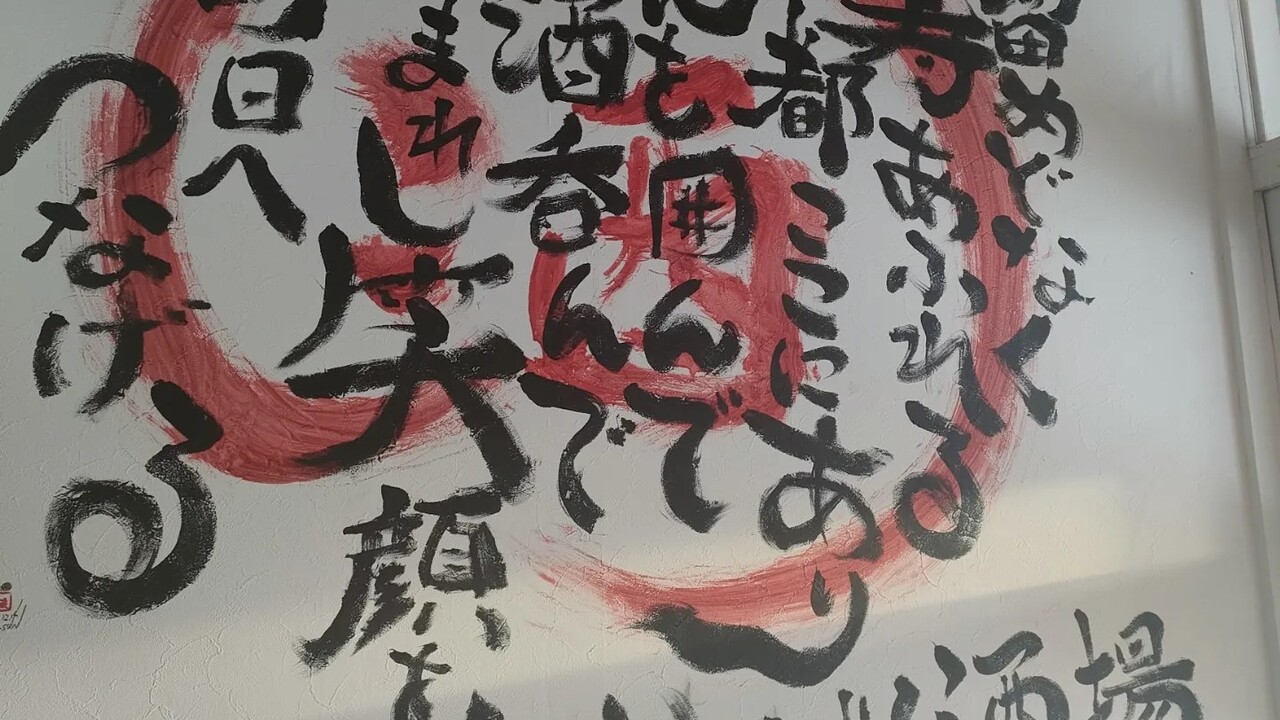 留めどなく
寿あふれる
都ここにあり
も囲んで
酒呑んで
まれし笑顔を
日へ
つなげる
酒場